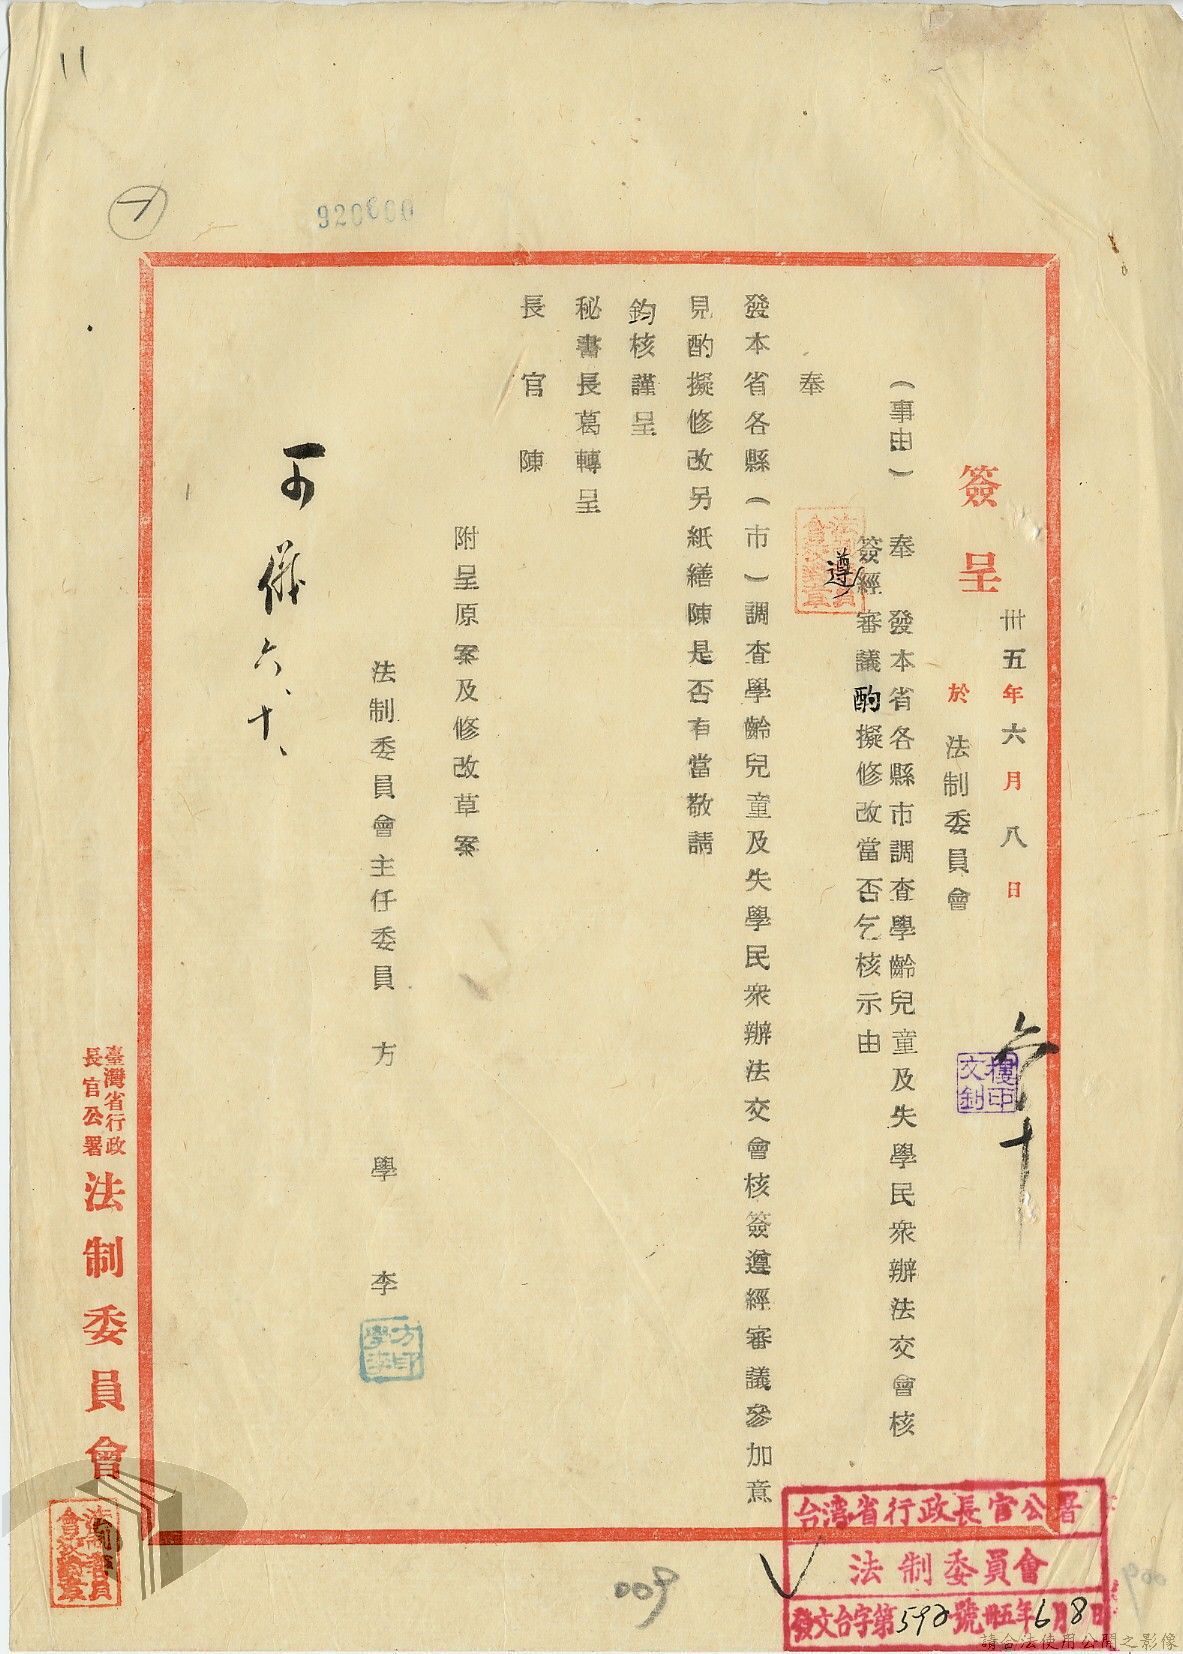 簽呈
卅五年六月八日
於法制委員會
六十
樓印
文釗
（事由）奉 發本省各縣市調查學齡兒童及失學民衆辦法交會核
簽遵經審議酌擬修改當否乞核示由
奉
發本省各縣（市）調查學齡兒童及失學民衆辦法交會核簽遵經審議參加意
見酌擬修改另紙繕陳是否有當敬請
鈞核謹呈
秘書長葛轉呈
長官陳
附呈原案及修改草案
法制委員會主任委員 方學李
方學李印
可
六、十、
臺灣省行政
長官公署
法制委員會
920000
台湾省行政長官公署
法制委員會
發文台字第592號卅五年6月8日
009
請合法使用公開之影像